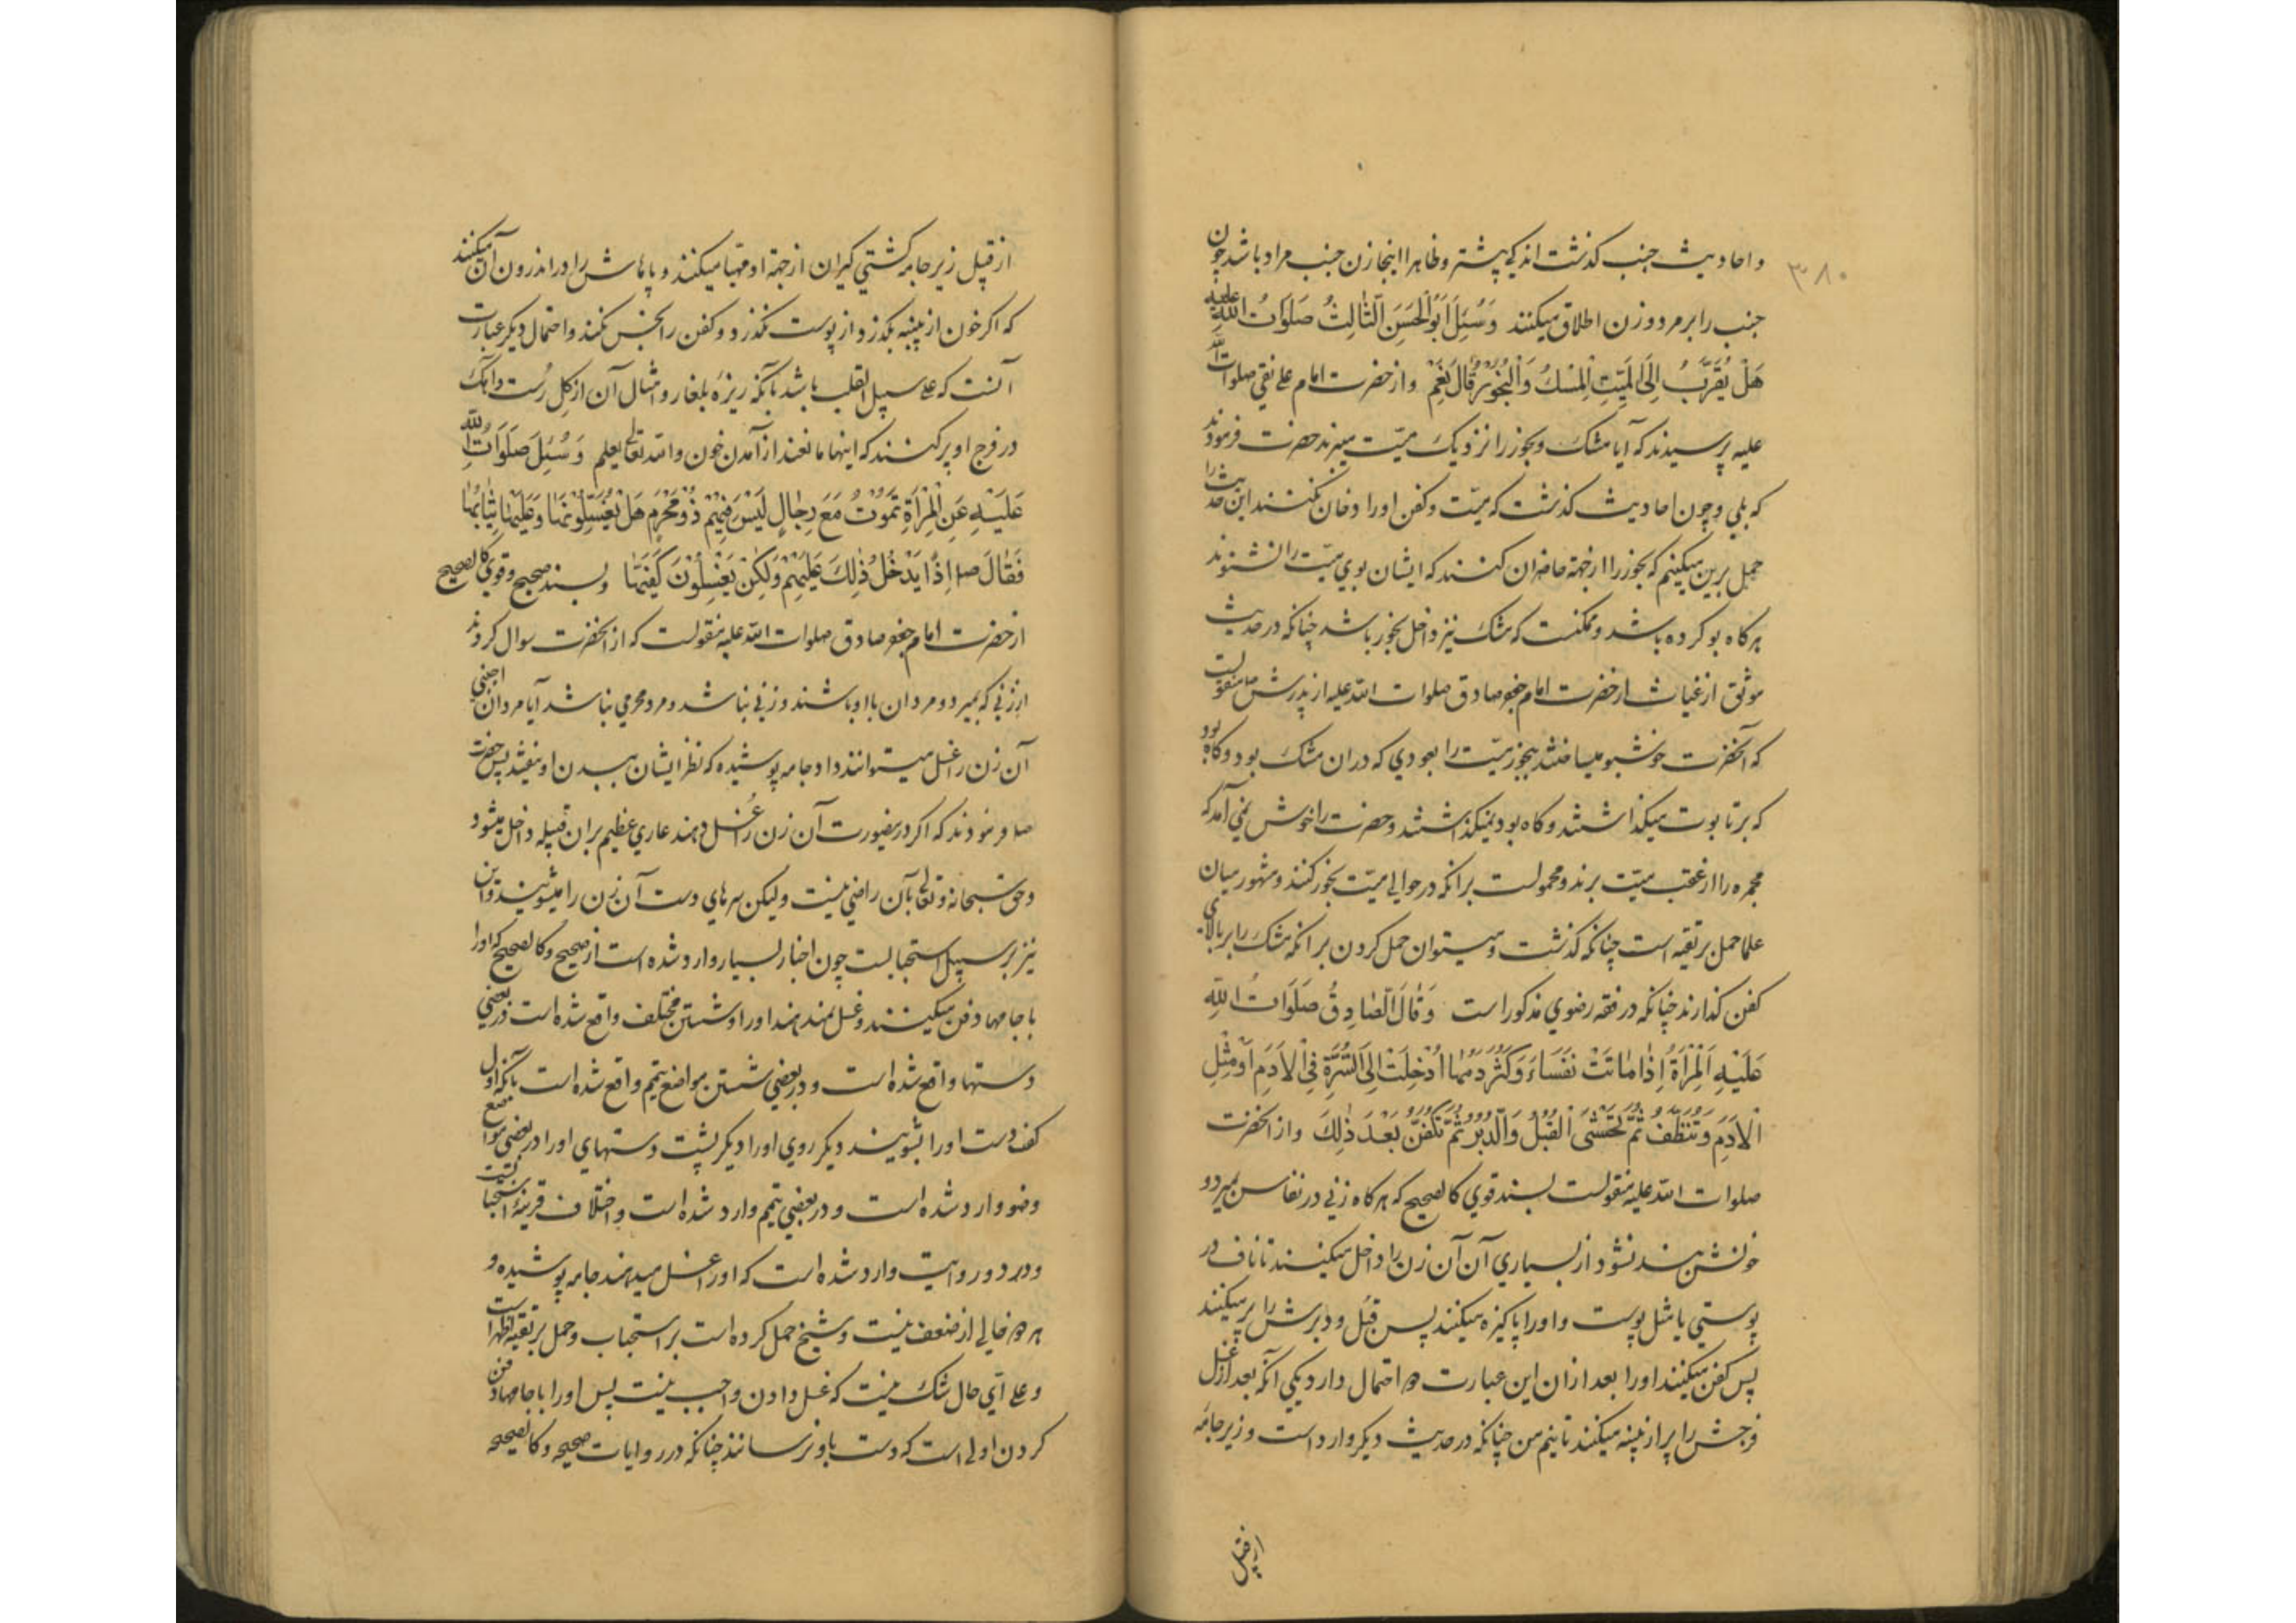 ۳۸۰
و احادیث جنب کذشت اندکی پیشتر و ظاهرا اینجا زن جنب مراد باشد چون
جنب را بر مرد و زن اطلاق میکنند وَسُئِلَ اَبُو الْحَسَنِ الثّالِثُ صَلَوَاتُ اللّٰهِ علیه
هَلْ یُقَرَّبُ اِلَی الْمَیِّتِ الْمِسْكُ وَالْبَخُورُ قَالَ نَعَمْ و از حضرت امام علی نقی صلوات اللّه
علیه پرسیدند که آیا مشک و بخور را نزدیک میّت میبرند حضرت فرمودند
که بلی و چون احادیث کذشت که میّت و کفن او را دخان نکنند این حدیث را
حمل برین میکنیم که بخور را از جهة حاضران کنند که ایشان بوی میّت را نشنوند
هرکاه بو کرده باشد و ممکنست که مشک نیز داخل بخور باشد چنانکه در حدیث
موثق از غیاث از حضرت امام جعفر صادق صلوات اللّه علیه از پدرش ص منقولست
که آنحضرت خوشبو میساختند ببخور میّت را بعودی که در ان مشک بود و کاه بود
که بر تابوت میکذاشتند و کاه بود نمیکذاشتند و حضرت را خوش نمی آمد که
مجمره را از عقب میّت برند و محمولست بر انکه در حوالی میّت بخور کنند و مشهور میان
علما حمل بر تقیه است چنانکه کذشت و میتوان حمل کردن بر انکه مشک را بر بالای
کفن کذارند چنانکه در فقه رضوی مذکور است وَقَالَ الصَّادِقُ صَلَوَاتُ اللّٰهِ
عَلَیْهِ اَلْمَرْأَةُ اِذٰا مٰاتَتْ نُفَسَاءَ وَکَثُرَ دَمُهٰا اُدْخِلَتْ اِلَی السُّرَّةِ فِی الْاَدَمِ اَوْ مِثْلِ
الْاَدَمِ وَتُنَظَّفُ ثُمَّ یُحْشَی الْقُبُلُ وَالدُّبُرُ ثُمَّ تُکَفَّنُ بَعْدَ ذٰلِكَ و از انحضرت
صلوات اللّه علیه منقولست بسند قوی کالصحیح که هرکاه زنی در نفاس بمیرد و
خونش بند نشود از بسیاری آن آن زن را داخل میکنند تا ناف در
پوستی یا مثل پوست و او را پاکیزه میکنند پس قبُل و دبرش را پر میکنند
پس کفن میکنند او را بعد از ان این عبارت دو احتمال دارد یکی آنکه بعد از غسل
فرجش را پر از پنبه میکنند تا نیم من چنانکه در حدیث دیکر وارد است و زیر جامهٔ
از قبیل
از قبیل زیر جامه کشتی کیران از جهة او مهیّا میکنند و پاهاش را در اندرون آن میکنند
که اکر خون از پنبه بکذرد از پوست نکذرد و کفن را نجس نکند و احتمال دیکر عبارت
آنست که علی سبیل القلب باشد بآنکه ریزهٔ بلغار و امثال آن از کِل رُست و آهک
در فرج او پر کنند که اینها مانعند از آمدن خون و اللّه تعالی یعلم وَسُئِلَ صَلَوَاتُ اللّٰهِ
عَلَیْهِ عَنِ الْمَرْأَةِ تَمُوْتُ مَعَ رِجٰالٍ لَیْسَ فِیْهِمْ ذُوْمَحْرَمٍ هَلْ یُغَسِّلُونَهٰا وَعَلَیْهٰا ثِیٰابُهٰا
فَقَالَ ص اِذًا یَدْخُلُ ذٰلِكَ عَلَیْهِمْ وَلٰکِنْ یَغْسِلُوْنَ کَفَّیْهٰا و بسند صحیح و قوی کالصحیح
از حضرت امام جعفر صادق صلوات اللّه علیه منقولست که از انحضرت سوال کردند
از زنی که بمیرد و مردان با او باشند و زنی نباشد و مرد محرمی نباشد آیا مردان اجنبی
آن زن را غسل میتوانند داد جامه پوشیده که نظر ایشان ببدن او نیفتد پس حضرت
ص فرمودند که اکر درینصورت آن زن را غُسل دهند عاری عظیم بران قبیله داخل میشود
و حق سبحانه و تعالی بآن راضی نیست ولیکن سرهای دست آن زن را میشویند و این
نیز بر سبیل استحبابست چون اخبار بسیار وارد شده است از صحیح و کالصحیح که او را
با جامها دفن میکنند و غسل نمیدهند او را و شستن مختلف واقع شده است در بعضی
دستها واقع شده است و در بعضی شستن مواضع تیمم واقع شده است بآنکه اول
کف دست او را بشویند دیکر روی او را دیکر پشت دستهای او را در بعضی مواضع
وضو وارد شده است و در بعضی تیمم وارد شده است و اختلاف قرینهٔ استحبابست
و در دو روایت وارد شده است که او را غسل میدهند جامه پوشیده و
هر دو خالی از ضعف نیست و شیخ حمل کرده است بر استحباب و حمل بر تقیه اظهر است
و علی ایّ حال شک نیست که غسل دادن واجب نیست پس او را با جامها دفن
کردن اولی است که دست باو نرسانند چنانکه در روایات صحیحه و کالصحیحه